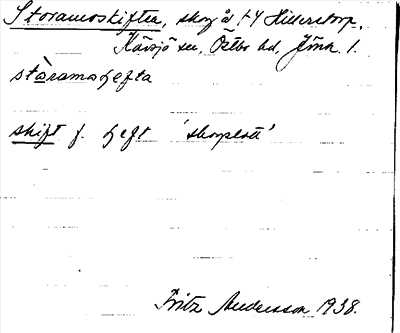 Storamoskiften, skog å t. Hillerstorp,
Kävsjö sn, Östbo hd, Jönk. l.
stòramoʃefta
skift f. ʃeft 'skogslott'
Fritz Andersson 1938.